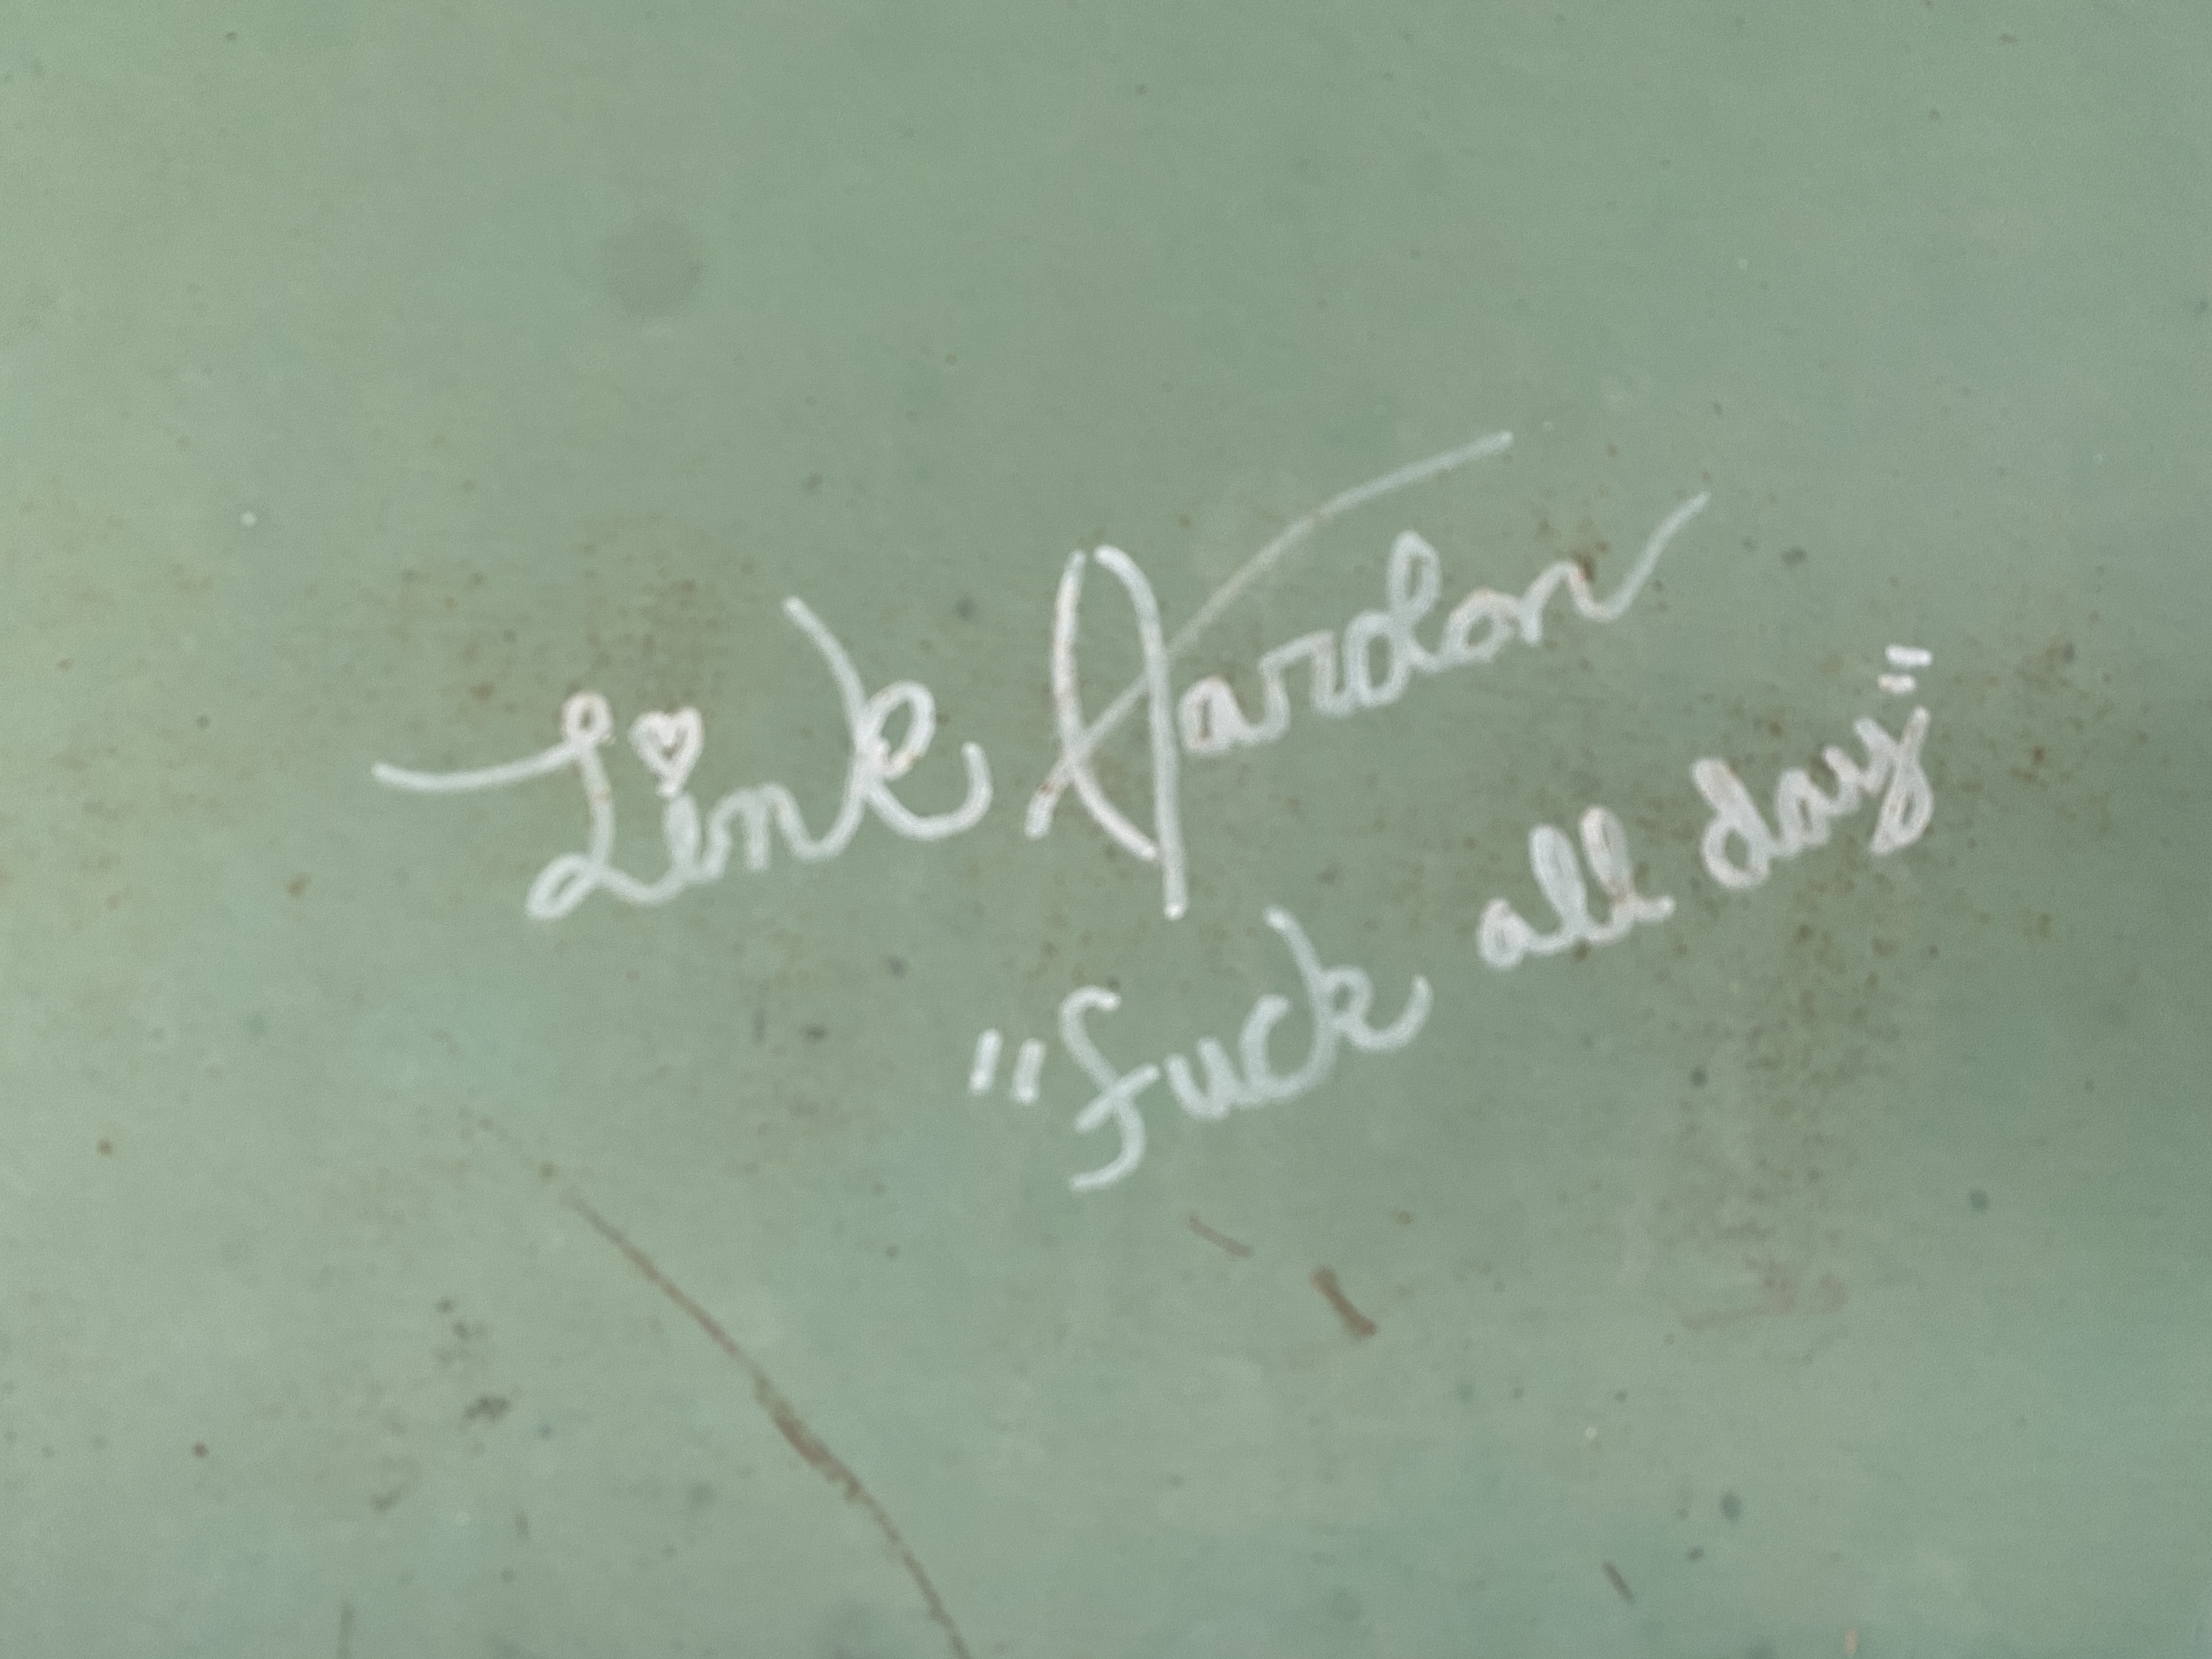 Link Hardon
"fuck all day"